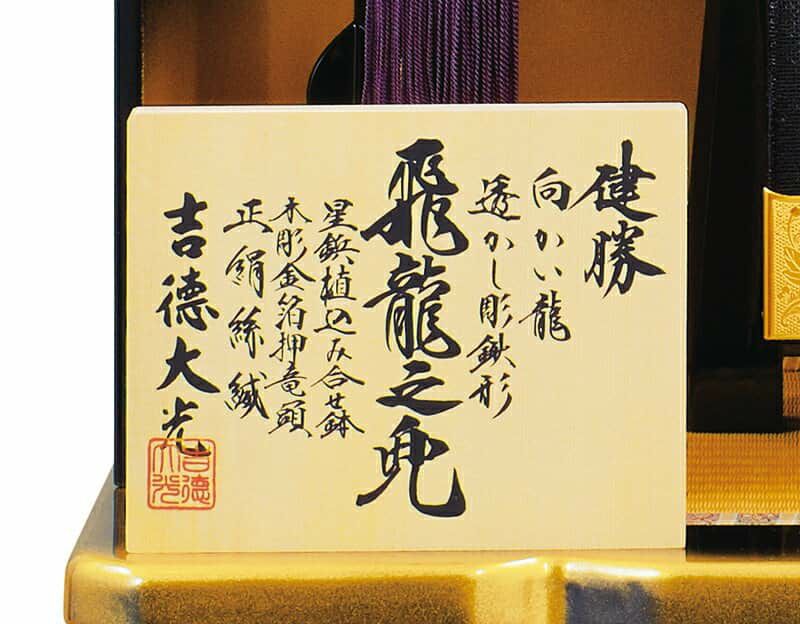 健勝
向かい龍
透かし彫鍬形
飛龍之兜
星鋲植込み合せ鉢
木彫金箔押竜頭
正絹絲縅
吉德大光
吉德大光